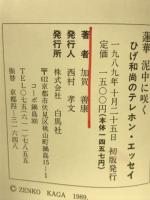 蓮華 泥中に咲く
ひげ和尚のテレホン・エッセイ
一九八九年十月二十五日 初版発行
定価 一五〇〇円（本体一四五七円）
著者 加賀善康
発行人 西村孝文
発行所 株式会社 白馬社
〒612 京都市伏見区桃山町鍋島
コーポ鍋島
電話
振替 京都
© ZENKO KAGA 1989.